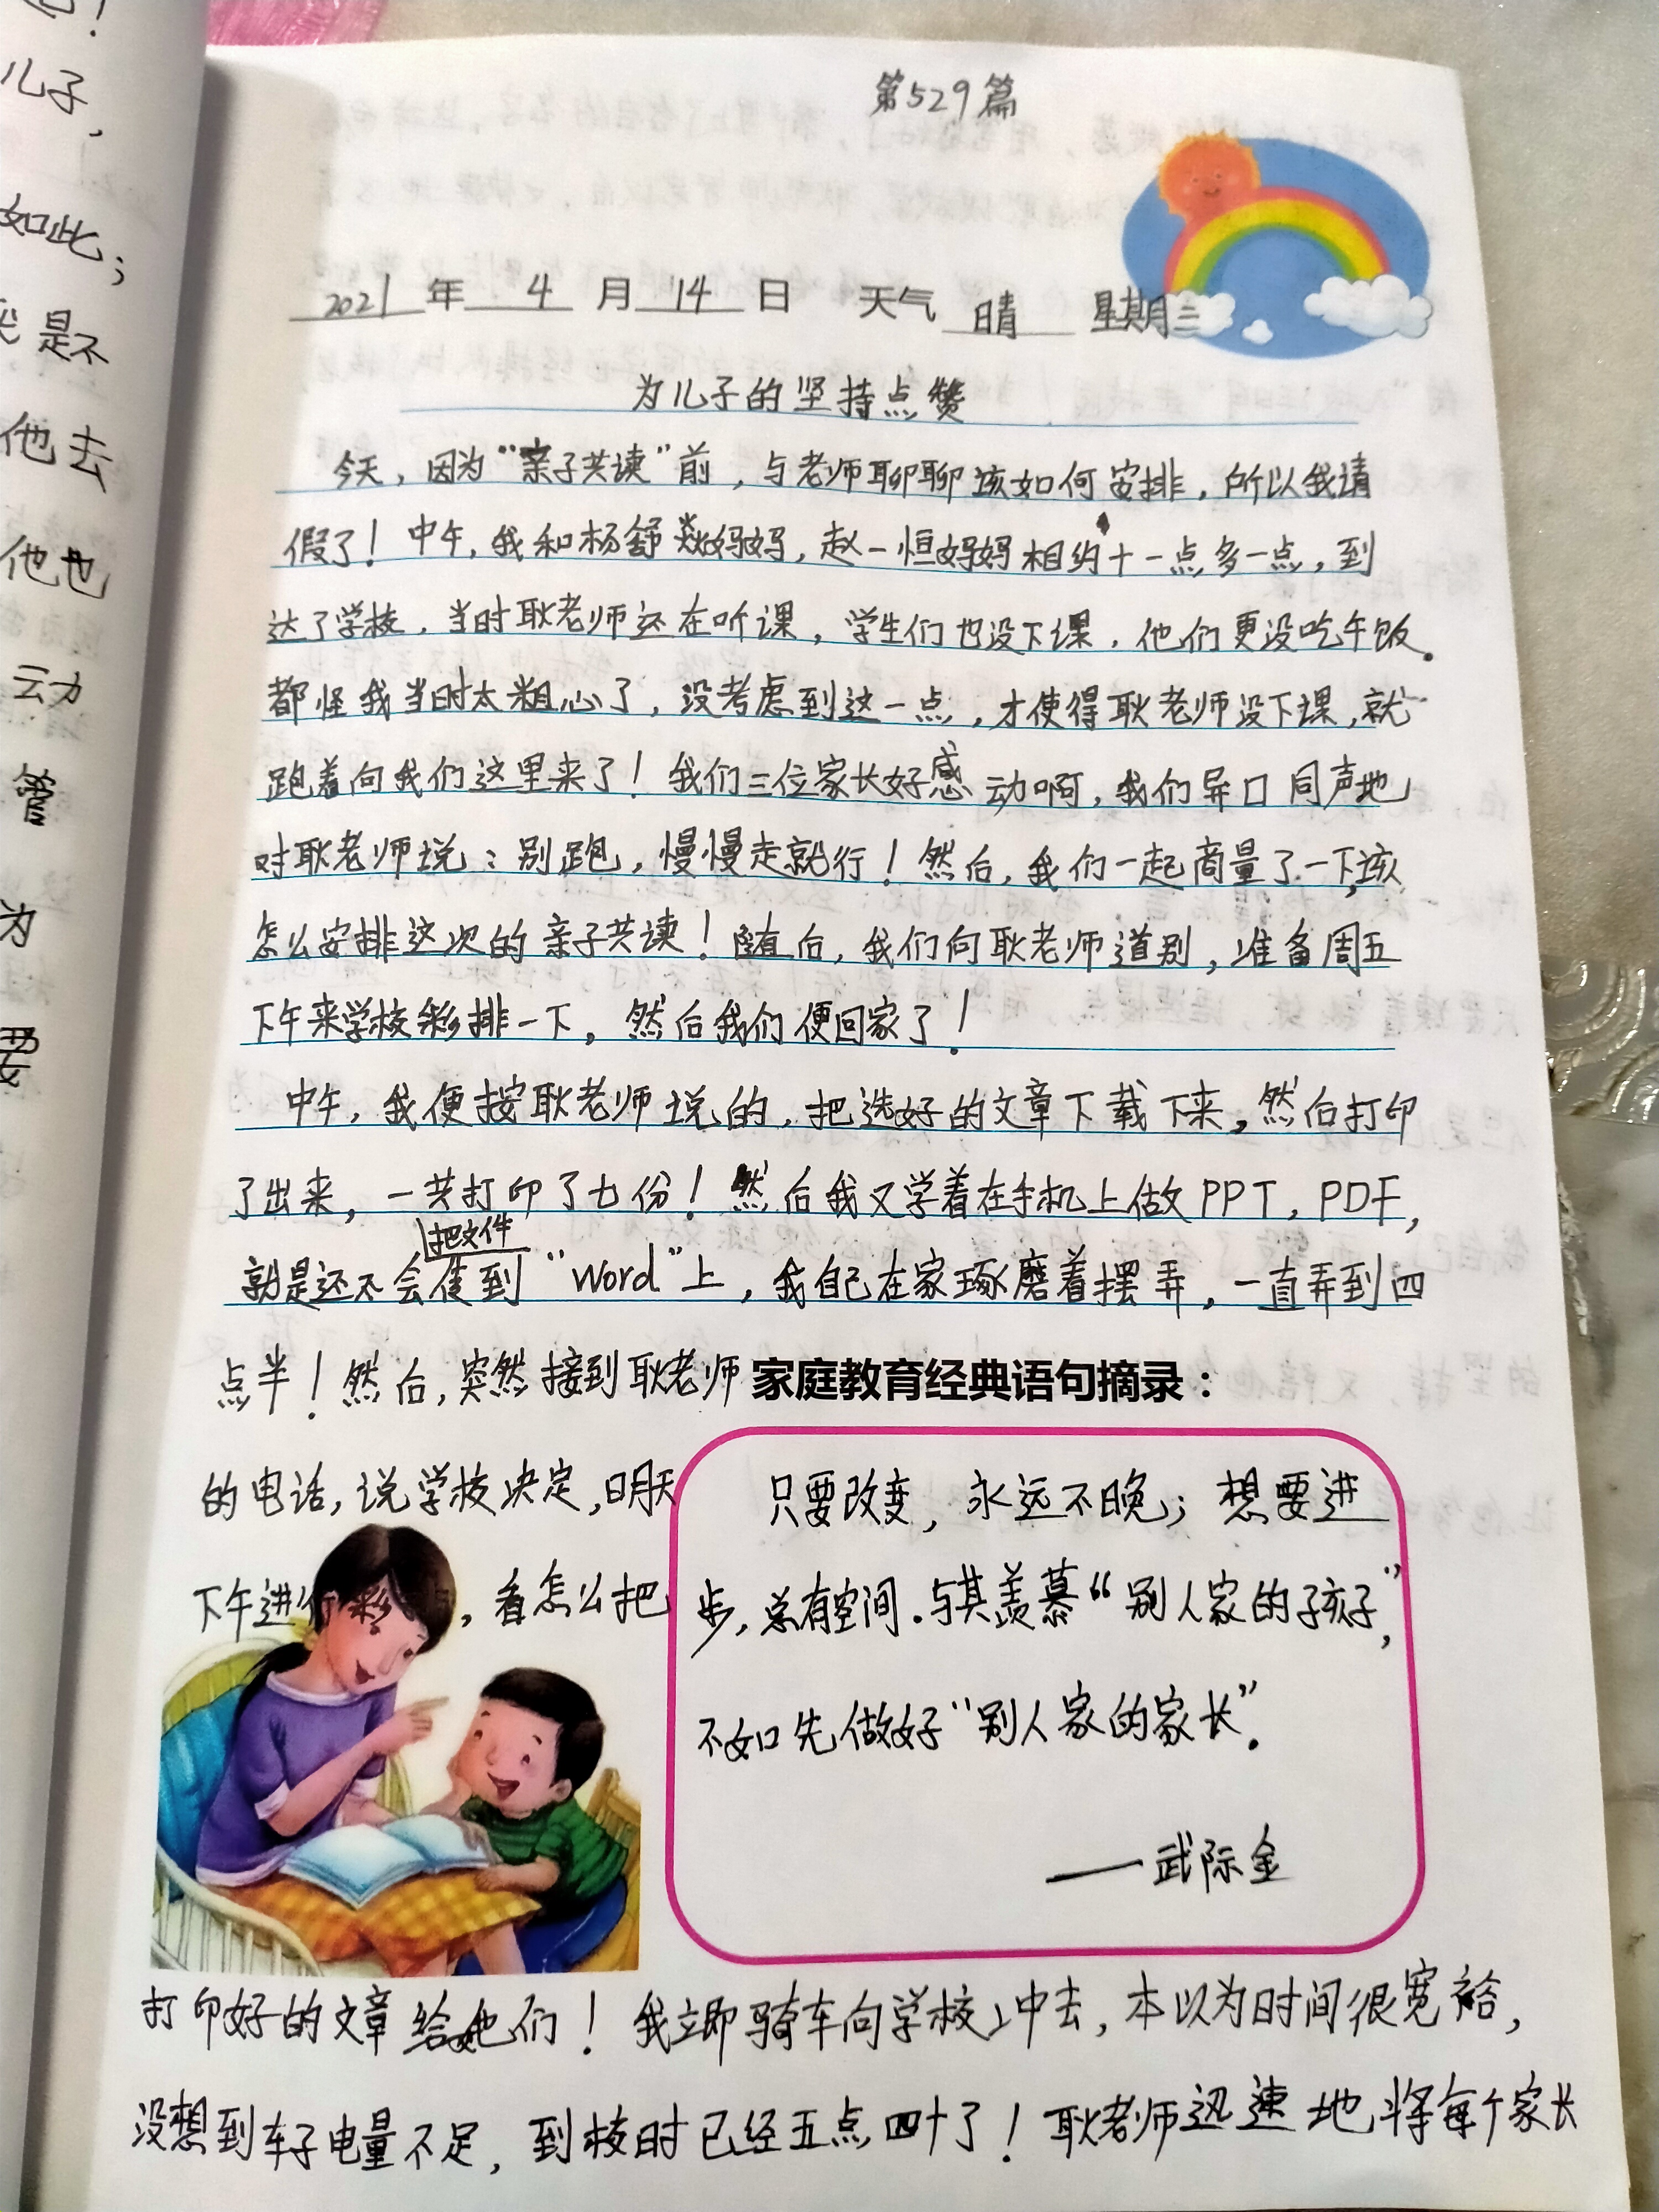 心！
儿子，
如此；
我是不
他去
他也
动
管
为
要
第529篇
2021年 4 月 14 日 天气 晴 星期三
为儿子的坚持点赞
今天，因为“亲子共读”前，与老师聊聊该如何安排，所以我请
假了！中午，我和杨舒焱妈妈，赵一恒妈妈相约十一点多一点，到
达了学校，当时耿老师还在听课，学生们也没下课，他们更没吃午饭。
都怪我当时太粗心了，没考虑到这一点，才使得耿老师没下课，就
跑着向我们这里来了！我们三位家长好感动啊，我们异口同声地
对耿老师说：别跑，慢慢走就行！然后，我们一起商量了一下，该
怎么安排这次的亲子共读！随后，我们向耿老师道别，准备周五
下午来学校彩排一下，然后我们便回家了！
中午，我便按耿老师说的，把选好的文章下载下来，然后打印
了出来，一共打印了七份！然后我又学着在手机上做PPT，PDF，
就是还不会把文件传到“Word”上，我自己在家琢磨着摆弄，一直弄到四
点半！然后，突然接到耿老师
的电话，说学校决定，明天
下午进行彩，看怎么把
家庭教育经典语句摘录：
只要改变，永远不晚；想要进
步，总有空间。与其羡慕“别人家的孩子”，
不如先做好“别人家的家长”。
——武际金
打印好的文章给她们！我立即骑车向学校冲去，本以为时间很宽裕，
没想到车子电量不足，到校时已经五点四十了！耿老师迅速地将每个家长